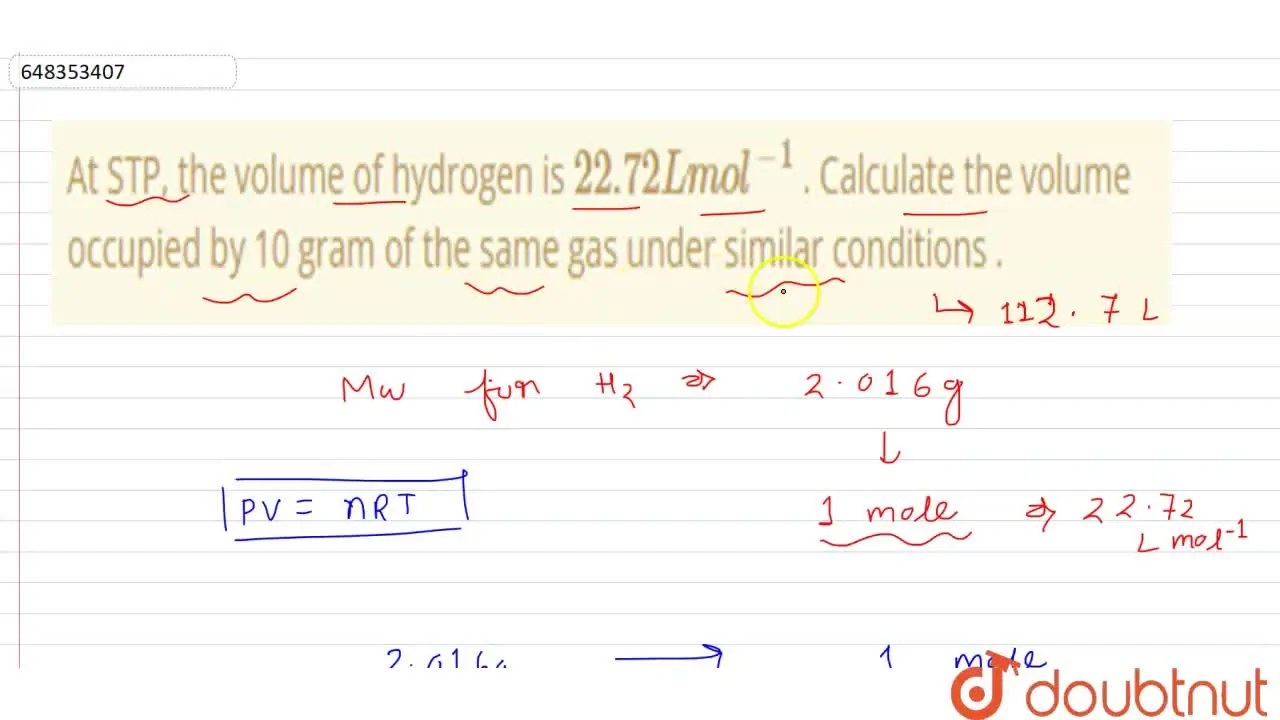 648353407
At STP, the volume of hydrogen is 22.72Lmol⁻¹ . Calculate the volume
occupied by 10 gram of the same gas under similar conditions .
↳ 112.7 L
Mw for H₂ ⇒ 2.016g
↓
PV = nRT
1 mole ⇒ 22.72
L mol⁻¹
2.016g → 1 mole
doubtnut